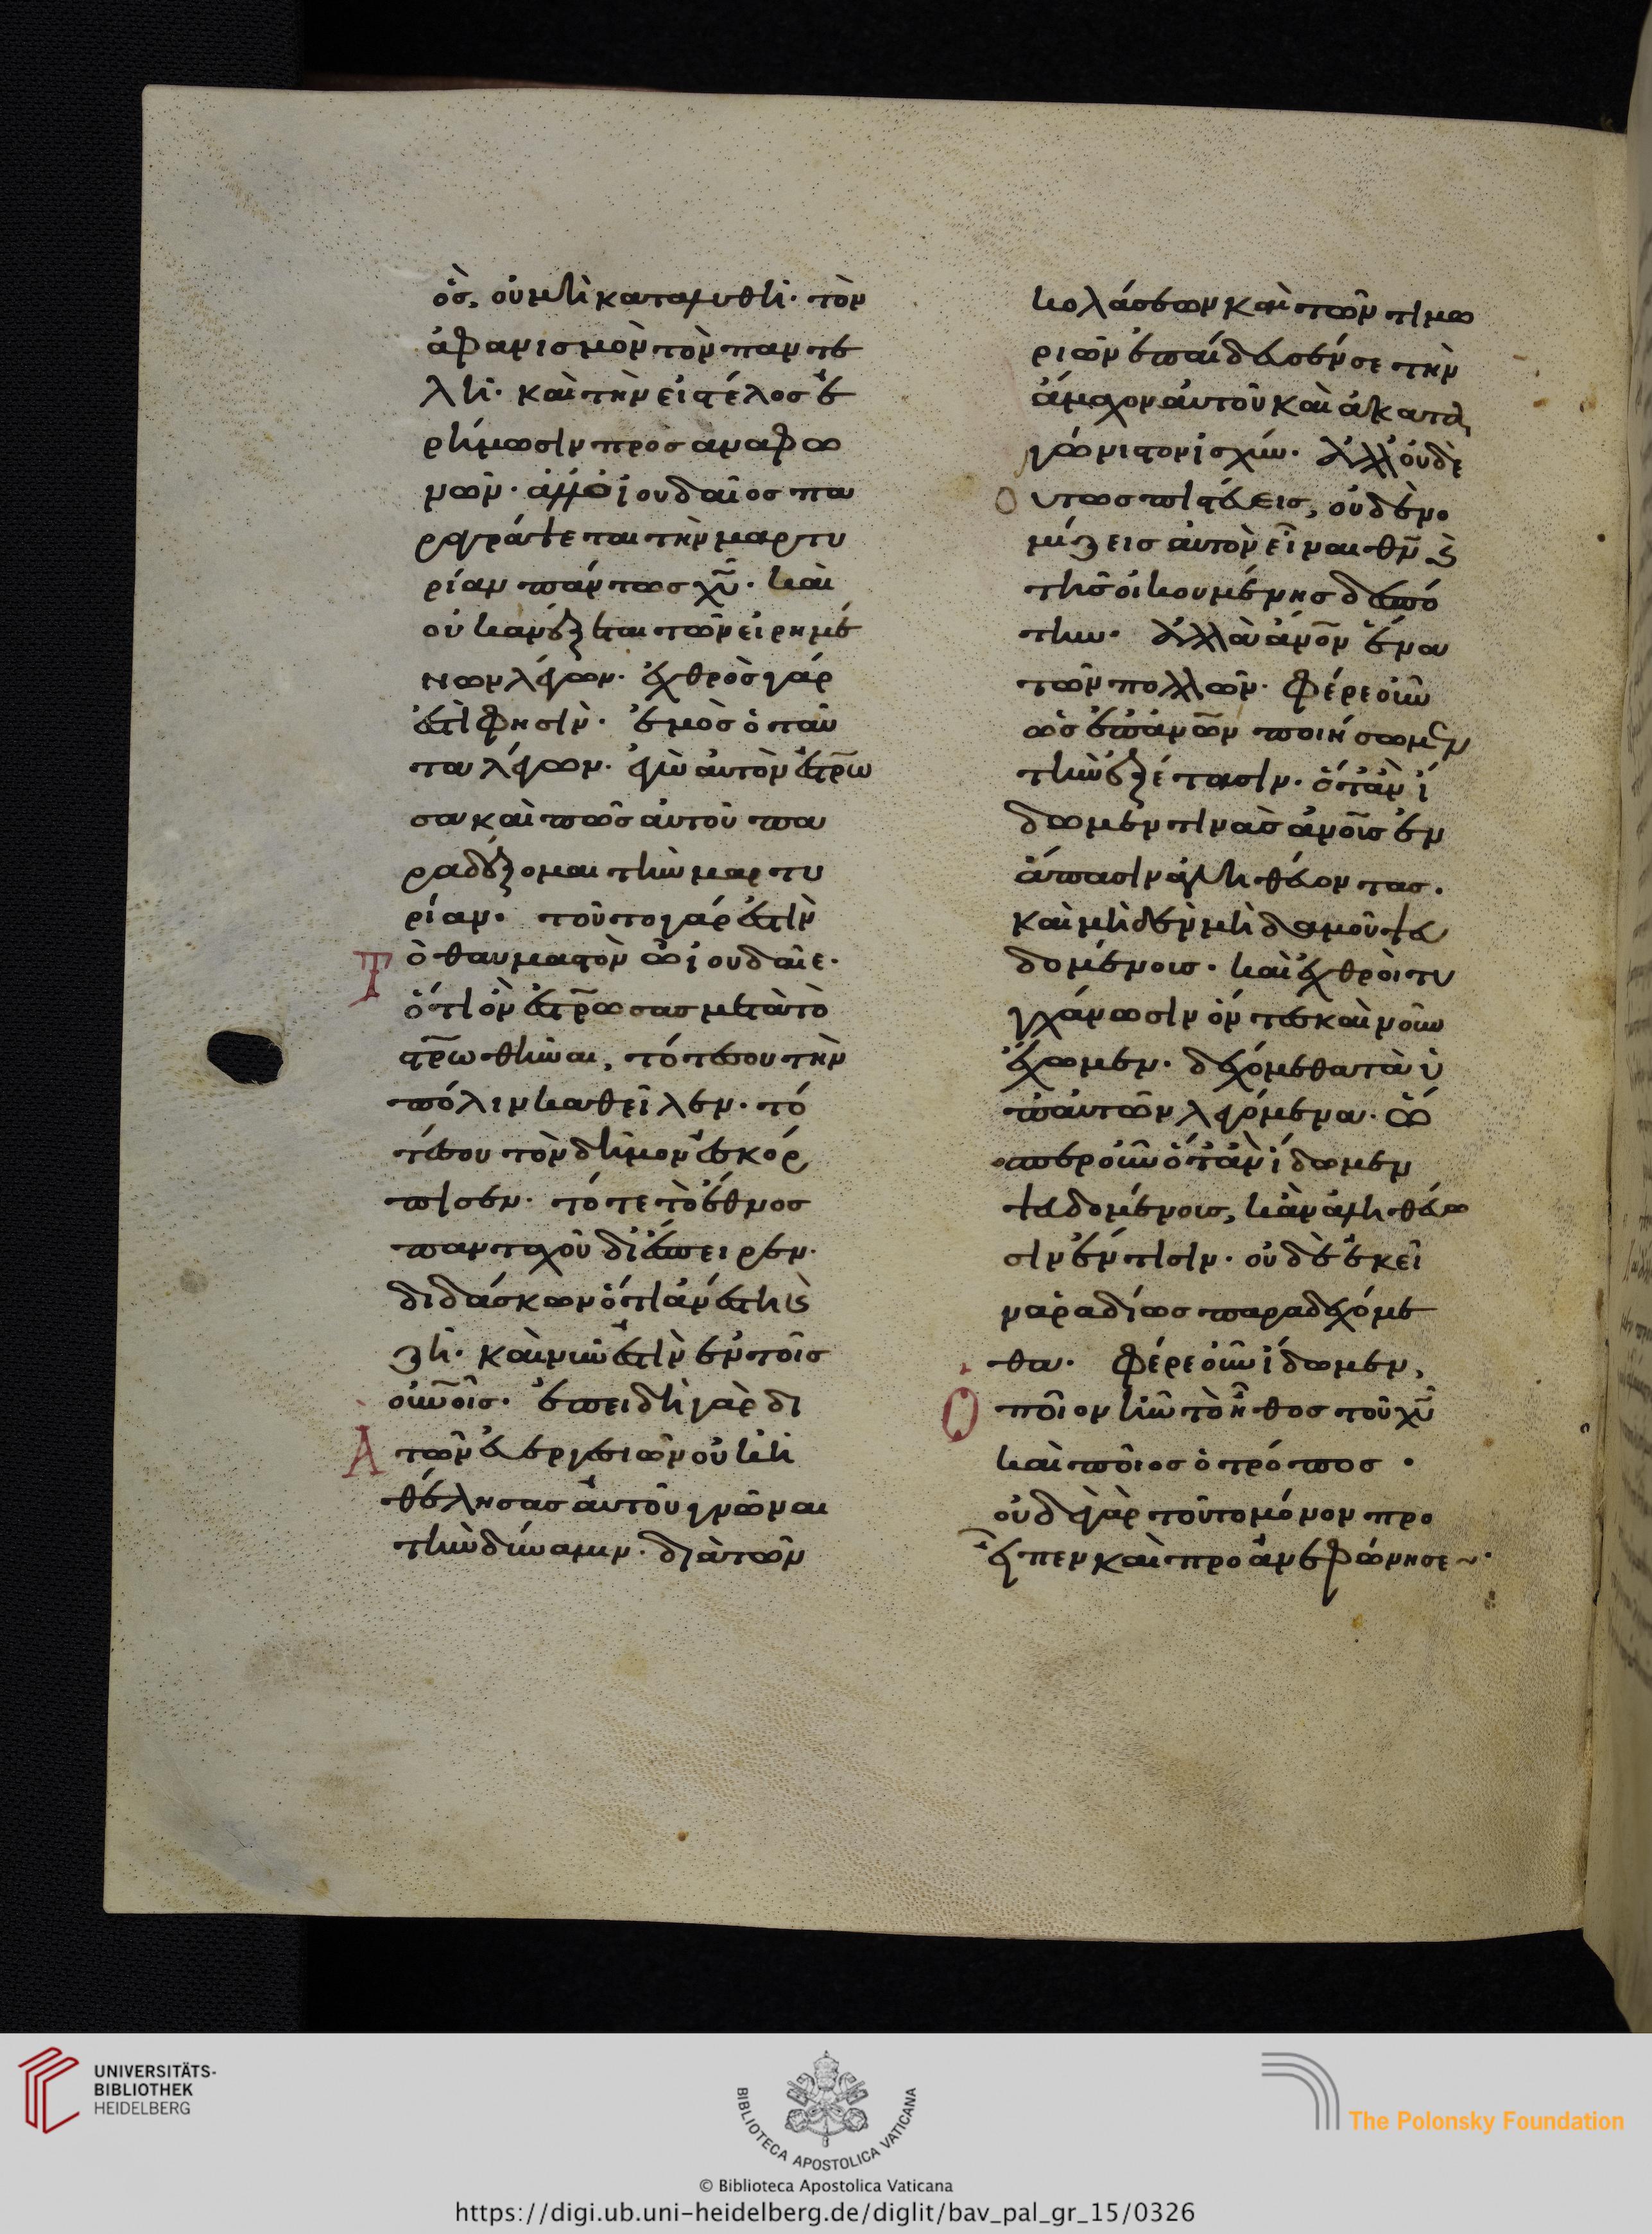 ὃσ, οὐ μὴ καταλυθῆ· τὸν
ἀφανισμὸν τὸν παντε
λῆ· καὶ τὴν εἰς τέλοσ ἐ
ρήμωσιν προσαναφω
νῶν· ἀλλ' ὁ ἰουδαῖοσ πα
ραγράφεται τὴν μαρτυ
ρίαν πάντωσ χυ̅· καὶ
οὐκ ἀνέξεται τῶν εἰρημέ
νων λέγων· ἐχθρὸσ γάρ
ἐστί φησὶν· ἐμὸσ ὁ ταῦ
τα λέγων· ἐγὼ αὐτὸν ἐστρ̅ω
σα καὶ πῶσ αὐτοῦ πα
ραδέξομαι τὴν μαρτυ
ρίαν· τοῦτο γάρ ἐστὶν
Τὸ θαυμαστὸν ὦ ἰουδαῖε·
ὅτι ὃν ἐστρ̅ωσασ μετὰ τὸ
στρ̅ωθῆναι, τότε σου τὴν
πόλιν καθεῖλεν· τό
τε σου τὸν δῆμον ἐσκόρ
πισεν· τότε τὸ ἔθνοσ
πανταχοῦ διέσπειρεν·
διδάσκων ὅτι ἀνέστη ϗ̀
ζῆ· καὶ νῦν ἐστὶν ἐν τοῖσ
οὐν̅οῖσ· ἐπειδὴ γὰρ δι
Α τῶν εὐεργεσιῶν οὐκ ἠ
θέλησασ αὐτοῦ γνῶναι
τὴν δύναμιν· διὰ τῶν
κολάσεων καὶ τῶν τιμω
ριῶν ἐπαίδευσέν σε τὴν
ἄμαχον αὐτοῦ καὶ ἀκατα
γώνιστον ἰσχύν· ἀλλ' οὐδὲ
Οὕτωσ πιστεύεισ, οὐδὲ νο
μίζεισ αὐτὸν εἶναι θν̅ ϗ̀
τῆσ οἰκουμένησ δεσπό
την· ἀλλὰ ἀν̅ον ἕνα
τῶν πολλῶν· φέρε οὖν
ὡσ ἐπ' ἀν̅ων ποιήσωμεν
τὴν ἐξέτασιν· ὅταν ἴ
δωμεν τινὰσ ἀν̅οισ ἐν
ἅπασιν ἀληθεύοντασ.
καὶ μὴδὲν μὴδαμοῦ ψευ
δομένοισ· κἂν ἐχθρὸι τυ
γχάνωσιν ὄντεσ καὶ νοῦν
ἔχωμεν· δεχόμεθα τὰ ὑ
π' αὐτῶν λεγόμενα· ὥ
σπερ οὖν ὅταν ἴδωμεν
ψευδομένοισ, κἂν ἀληθεύω
σιν ἔν τισιν· οὐδὲ ἐκεῖ
να ῥαδίωσ παραδεχόμε
θα· φέρε οὖν ἴδωμεν,
Ὁποῖον ἦν τὸ ἦθοσ τοῦ χυ̅
καὶ ποῖοσ ὁ τρόποσ ·
οὐδὲ γὰρ τοῦτο μόνον προ
εῖπεν καὶ προανεφώνησε~·
UNIVERSITÄTS-
BIBLIOTHEK
HEIDELBERG
BIBLIOTECA APOSTOLICA VATICANA
The Polonsky Foundation
© Biblioteca Apostolica Vaticana
https://digi.ub.uni-heidelberg.de/diglit/bav_pal_gr_15/0326